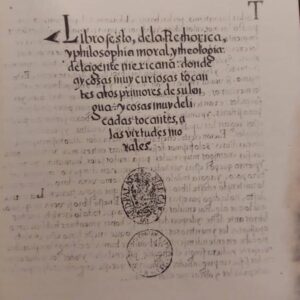 T
Libro sesto, dela Rethorica,
y philosophia moral, y theologia:
dela gente mexicana: donde
ay cosas muy curiosas tocan
tes alos primores de su len
gua: y cosas muy deli
cadas tocantes, a
las virtudes mo
rales.